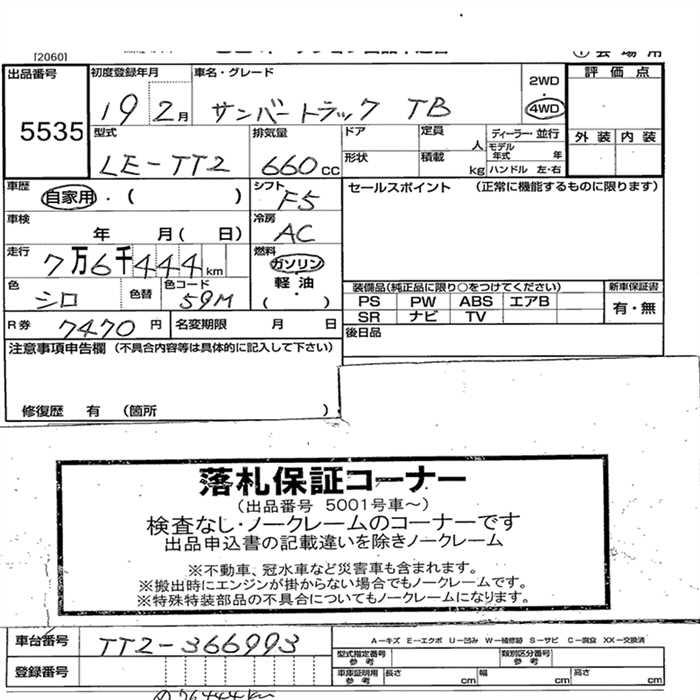 [2060]
会場用
出品番号 5535
初度登録年月 19 2月
車名・グレード サンバートラック TB
2WD 4WD
評価点
外装 内装
型式 LE-TT2
排気量 660cc
ドア
形状
定員 人
積載 kg
ディーラー・並行
モデル年式 年
ハンドル 左・右
車歴 自家用・( )
シフト F5
セールスポイント (正常に機能するものに限ります)
車検 年 月( 日)
冷房 AC
走行 7万6千444km
燃料 ガソリン
軽油
・( )
色 シロ
色替
色コード 59M
装備品(純正品に限り○をつけてください)
PS PW ABS エアB
SR ナビ TV
新車保証書
有・無
R券 7470円
名変期限 月 日
後日品
注意事項申告欄 (不具合内容等は具体的に記入して下さい)
修復歴 有 (箇所 )
落札保証コーナー
(出品番号 5001号車~)
検査なし・ノークレームのコーナーです
出品申込書の記載違いを除きノークレーム
※不動車、冠水車など災害車も含まれます。
※搬出時にエンジンが掛からない場合でもノークレームです。
※特殊特装部品の不具合についてもノークレームになります。
車台番号 TT2-366993
A-キズ E-エクボ U-凹み W-補修跡 S-サビ C-腐食 XX-交換済
型式指定番号 参考
類別区分番号 参考
登録番号
車庫証明用 参考
長さ cm
幅 cm
高さ cm